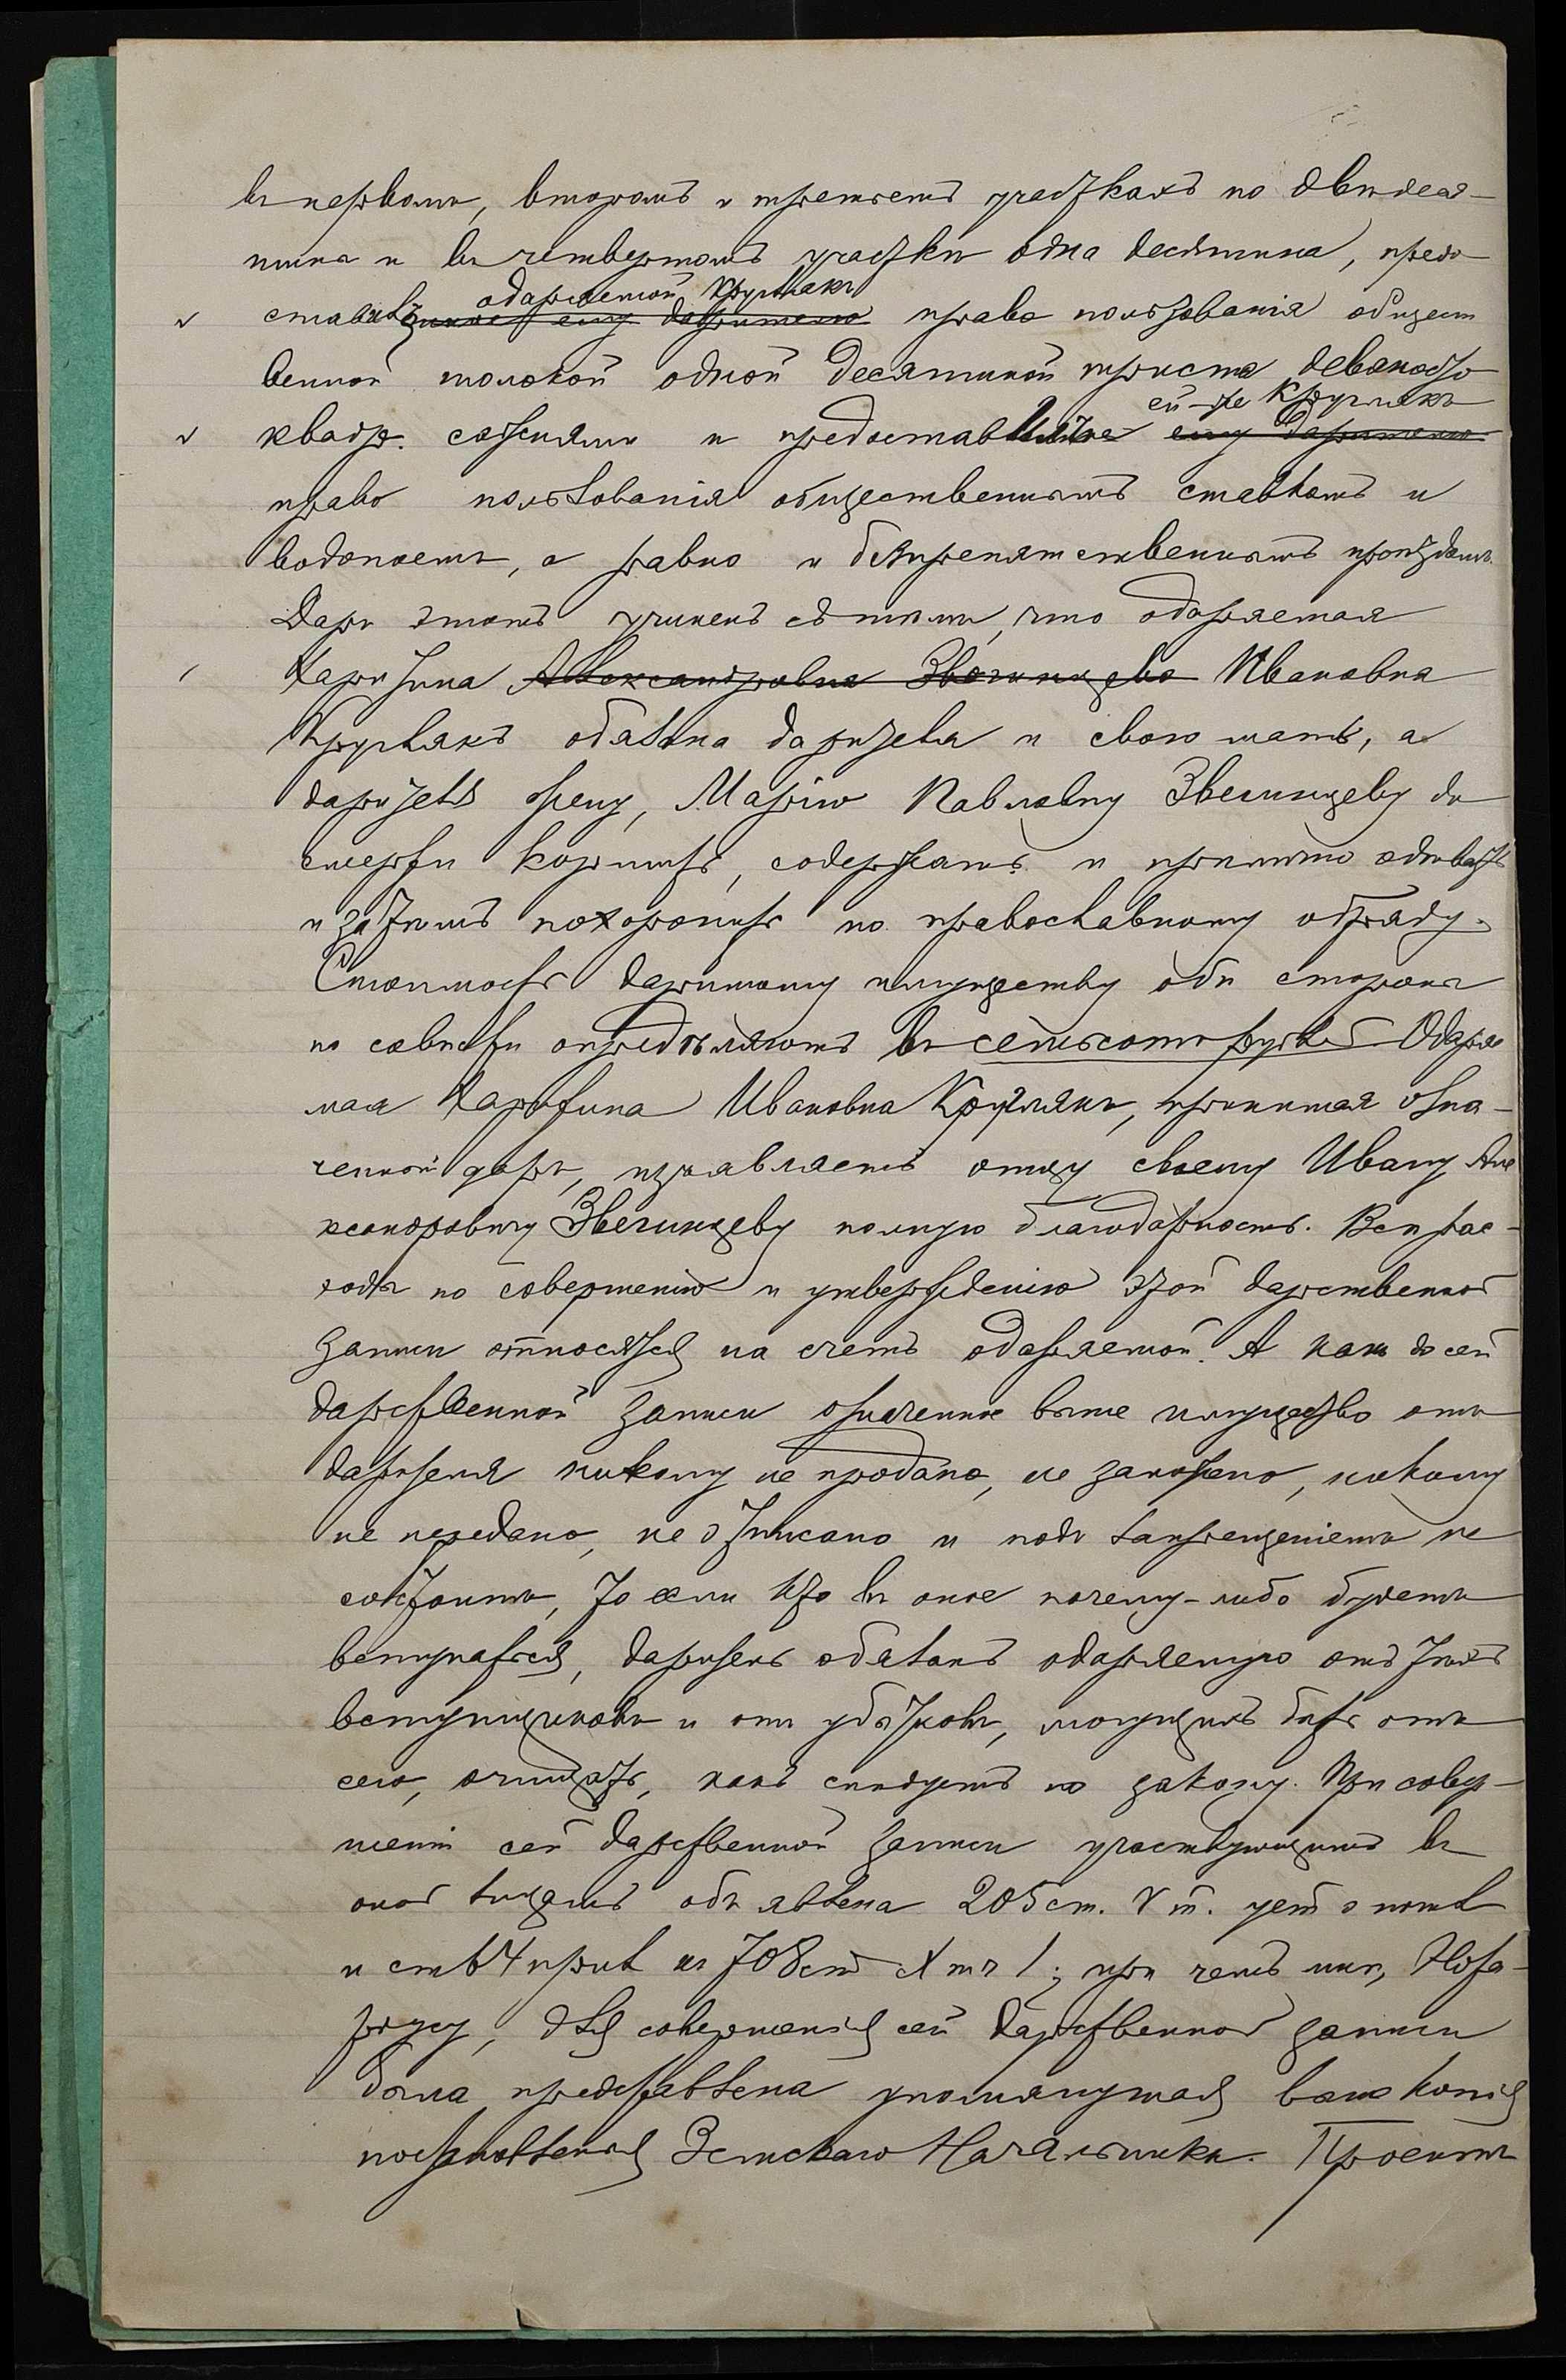 въ первомъ, второмъ и третьемъ участкахъ по двѣ деся-
тина и въ четвертомъ участкѣ одна десятина, предо-
одаряемой Кругляк
ставивъ принадл ему дарителю право пользованія общест
венной толокой одной десятиной триста девяносто
ей-же Кругляк
квадр. саженями и предоставляя ему дарителю
право пользованія общественнымъ ставкомъ и
водопоемъ, а равно и безпрепятственнымъ проѣздомъ.
Даръ этотъ учиненъ съ тѣмъ, что одаряемая
Харитина Александровна Звегинцева Ивановна
Круглякъ обязана дарителя и свою мать, а
дарителя жену, Марію Павловну Звегинцеву до
смерти кормить, содержать и прилично одѣвать
и затѣмъ похоронить по православному обряду.
Стоимость даримому имуществу обѣ стороны
по совѣсти опредѣляютъ въ семьсотъ рублей Одаряе
мая Харитина Ивановна Круглякъ, принимая озна-
ченный даръ, изъявляетъ отцу своему Ивану Але
ксандровичу Звегинцеву полную благодарность. Всѣ рас-
ходы по совершенію и утвержденію этой дарственной
записи относятся на счетъ одаряемой. А какъ до сей
дарственной записи означенное выше имущество отъ
дарителя никому не продано, не заложено, никому
не передано, не отписано и подъ запрещеніемъ не
состоитъ, то если кто въ оное почему-либо будетъ
вступаться, даритель обязанъ одаряемую отъ тѣхъ
вступщиковъ и отъ убытковъ, могущихъ быть отъ
сего, очищать, какъ слѣдуетъ по закону. При совер-
шеніи сей дарственной записи участвующимъ въ
оной лицамъ объявлена 205 ст. V т. уст о пошл
и ст 4 прил къ 708 ст X т ч 1; при чемъ мнѣ, Нота-
ріусу, для совершенія сей дарственной записи
была представлена упомянутая выше копія
постановленія Земскаго Начальника. Проектъ